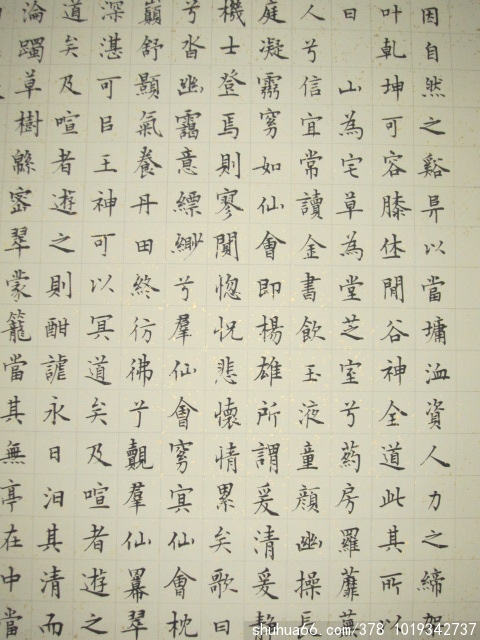 因自然之谿以當墉洫資人力之締架
叶乾坤可容膝休閒谷神全道此其所以
曰 山為宅草為堂芝室兮葯房羅蘼蕪
人兮信宜常讀金書飲玉液童顏幽操長
庭凝窮如仙會即楊雄所謂爰清爰靜
機士登焉則寥闃惚怳悲懷情累矣歌曰
兮沓幽靄意縹緲兮羣仙會窮冥仙會枕
巔舒顥氣養丹田終彷彿兮覿羣仙冪翠
深湛可㠯王神可以冥道矣及喧者遊之
道矣及喧者遊之則酣謔永日汩其清而
淪躅草樹緜密翠蒙籠當其無亭在中當
shuhua66.com/378 1019342737